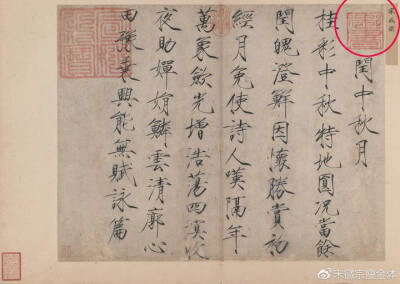 閏中秋月
桂彩中秋特地圓况當餘
閏魄澄鮮因懷勝賞初
經月免使詩人嘆隔年
萬象歛光增浩蕩四溟收
夜助嬋娟鱗雲清廓心
田豫乘興能無賦詠篇
@宋徽宗瘦金体